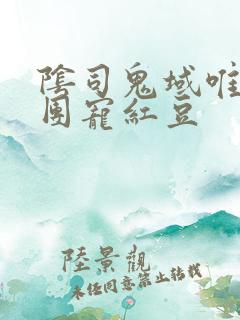 陰司鬼域唯
團寵紅豆
陸景觀
未经同意禁止转载